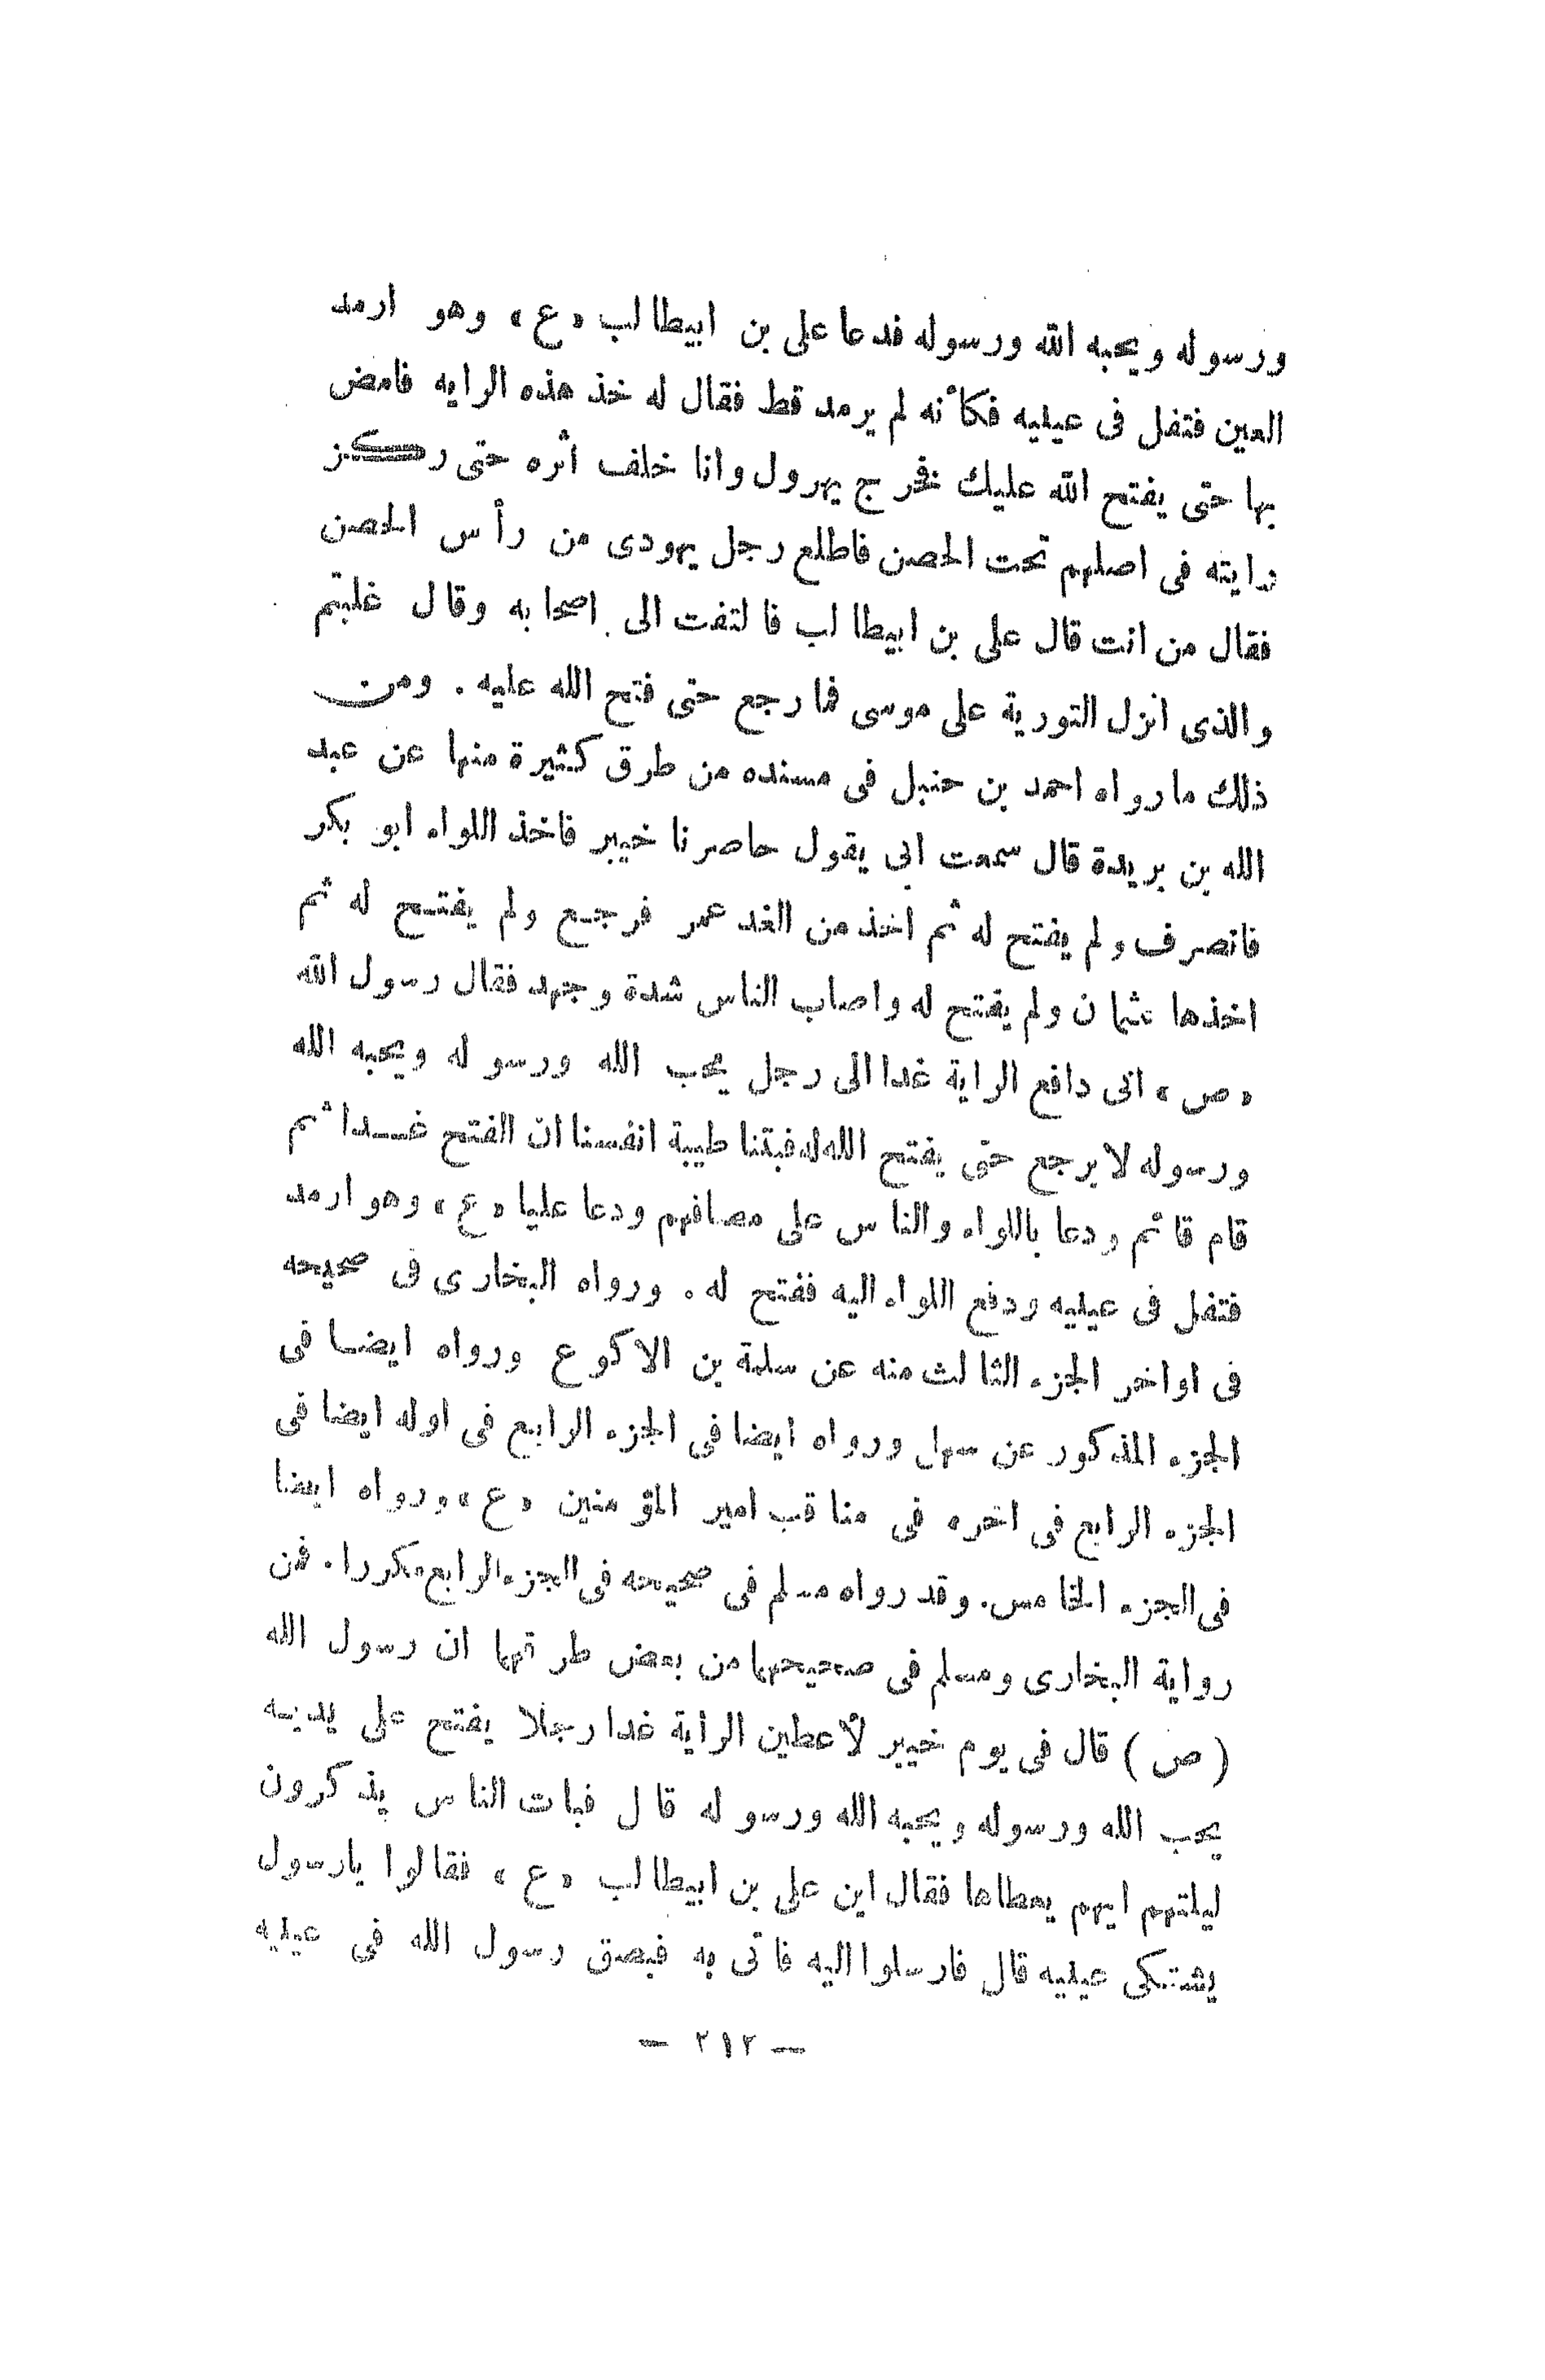 ورسوله ويحبه الله ورسوله فدعا على بن ابيطالب «ع» وهو ارمد
العين فتفل فى عينيه فكأنه لم يرمد قط فقال له خذ هذه الرايه فامض
بها حتى يفتح الله عليك فخرج يهرول وانا خلف اثره حتى ركز
رايته فى اصلهم تحت الحصن فاطلع رجل يهودى من رأس الحصن
فقال من انت قال على بن ابيطالب فالتفت الى اصحابه وقال غلبتم
والذى انزل التورية على موسى فما رجع حتى فتح الله عليه . ومن
ذلك مارواه احمد بن حنبل فى مسنده من طرق كثيرة منها عن عبد
الله بن بريدة قال سمعت ابى يقول حاصرنا خيبر فاخذ اللواء ابو بكر
فانصرف ولم يفتح له ثم اخذ من الغد عمر فرجع ولم يفتح له ثم
اخذها عثمان ولم يفتح له واصاب الناس شدة وجهد فقال رسول الله
«ص» انى دافع الراية غدا الى رجل يحب الله ورسوله ويحبه الله
ورسوله لا يرجع حتى يفتح الله له فبتنا طيبة انفسنا ان الفتح غدا ثم
قام قائم ودعا باللواء والناس على مصافهم ودعا عليا «ع» وهو ارمد
فتفل فى عينيه ودفع اللواء اليه ففتح له . ورواه البخارى فى صحيحه
فى اواخر الجزء الثالث منه عن سلمة بن الاكوع ورواه ايضا فى
الجزء المذكور عن سهل ورواه ايضا فى الجزء الرابع فى اوله ايضا فى
الجزء الرابع فى اخره فى مناقب امير المؤمنين «ع» ورواه ايضا
فى الجزء الخامس. وقد رواه مسلم فى صحيحه فى الجزء الرابع مكررا. فمن
رواية البخارى ومسلم فى صحيحهما من بعض طرقهما ان رسول الله
(ص) قال فى يوم خيبر لأعطين الراية غدا رجلا يفتح على يديه
يحب الله ورسوله ويحبه الله ورسوله قال فبات الناس يذكرون
ليلتهم ايهم يعطاها فقال اين على بن ابيطالب «ع» فقالوا يارسول
يشتكى عينيه قال فارسلوا اليه فاتى به فبصق رسول الله فى عينيه
— ٢١٢ —